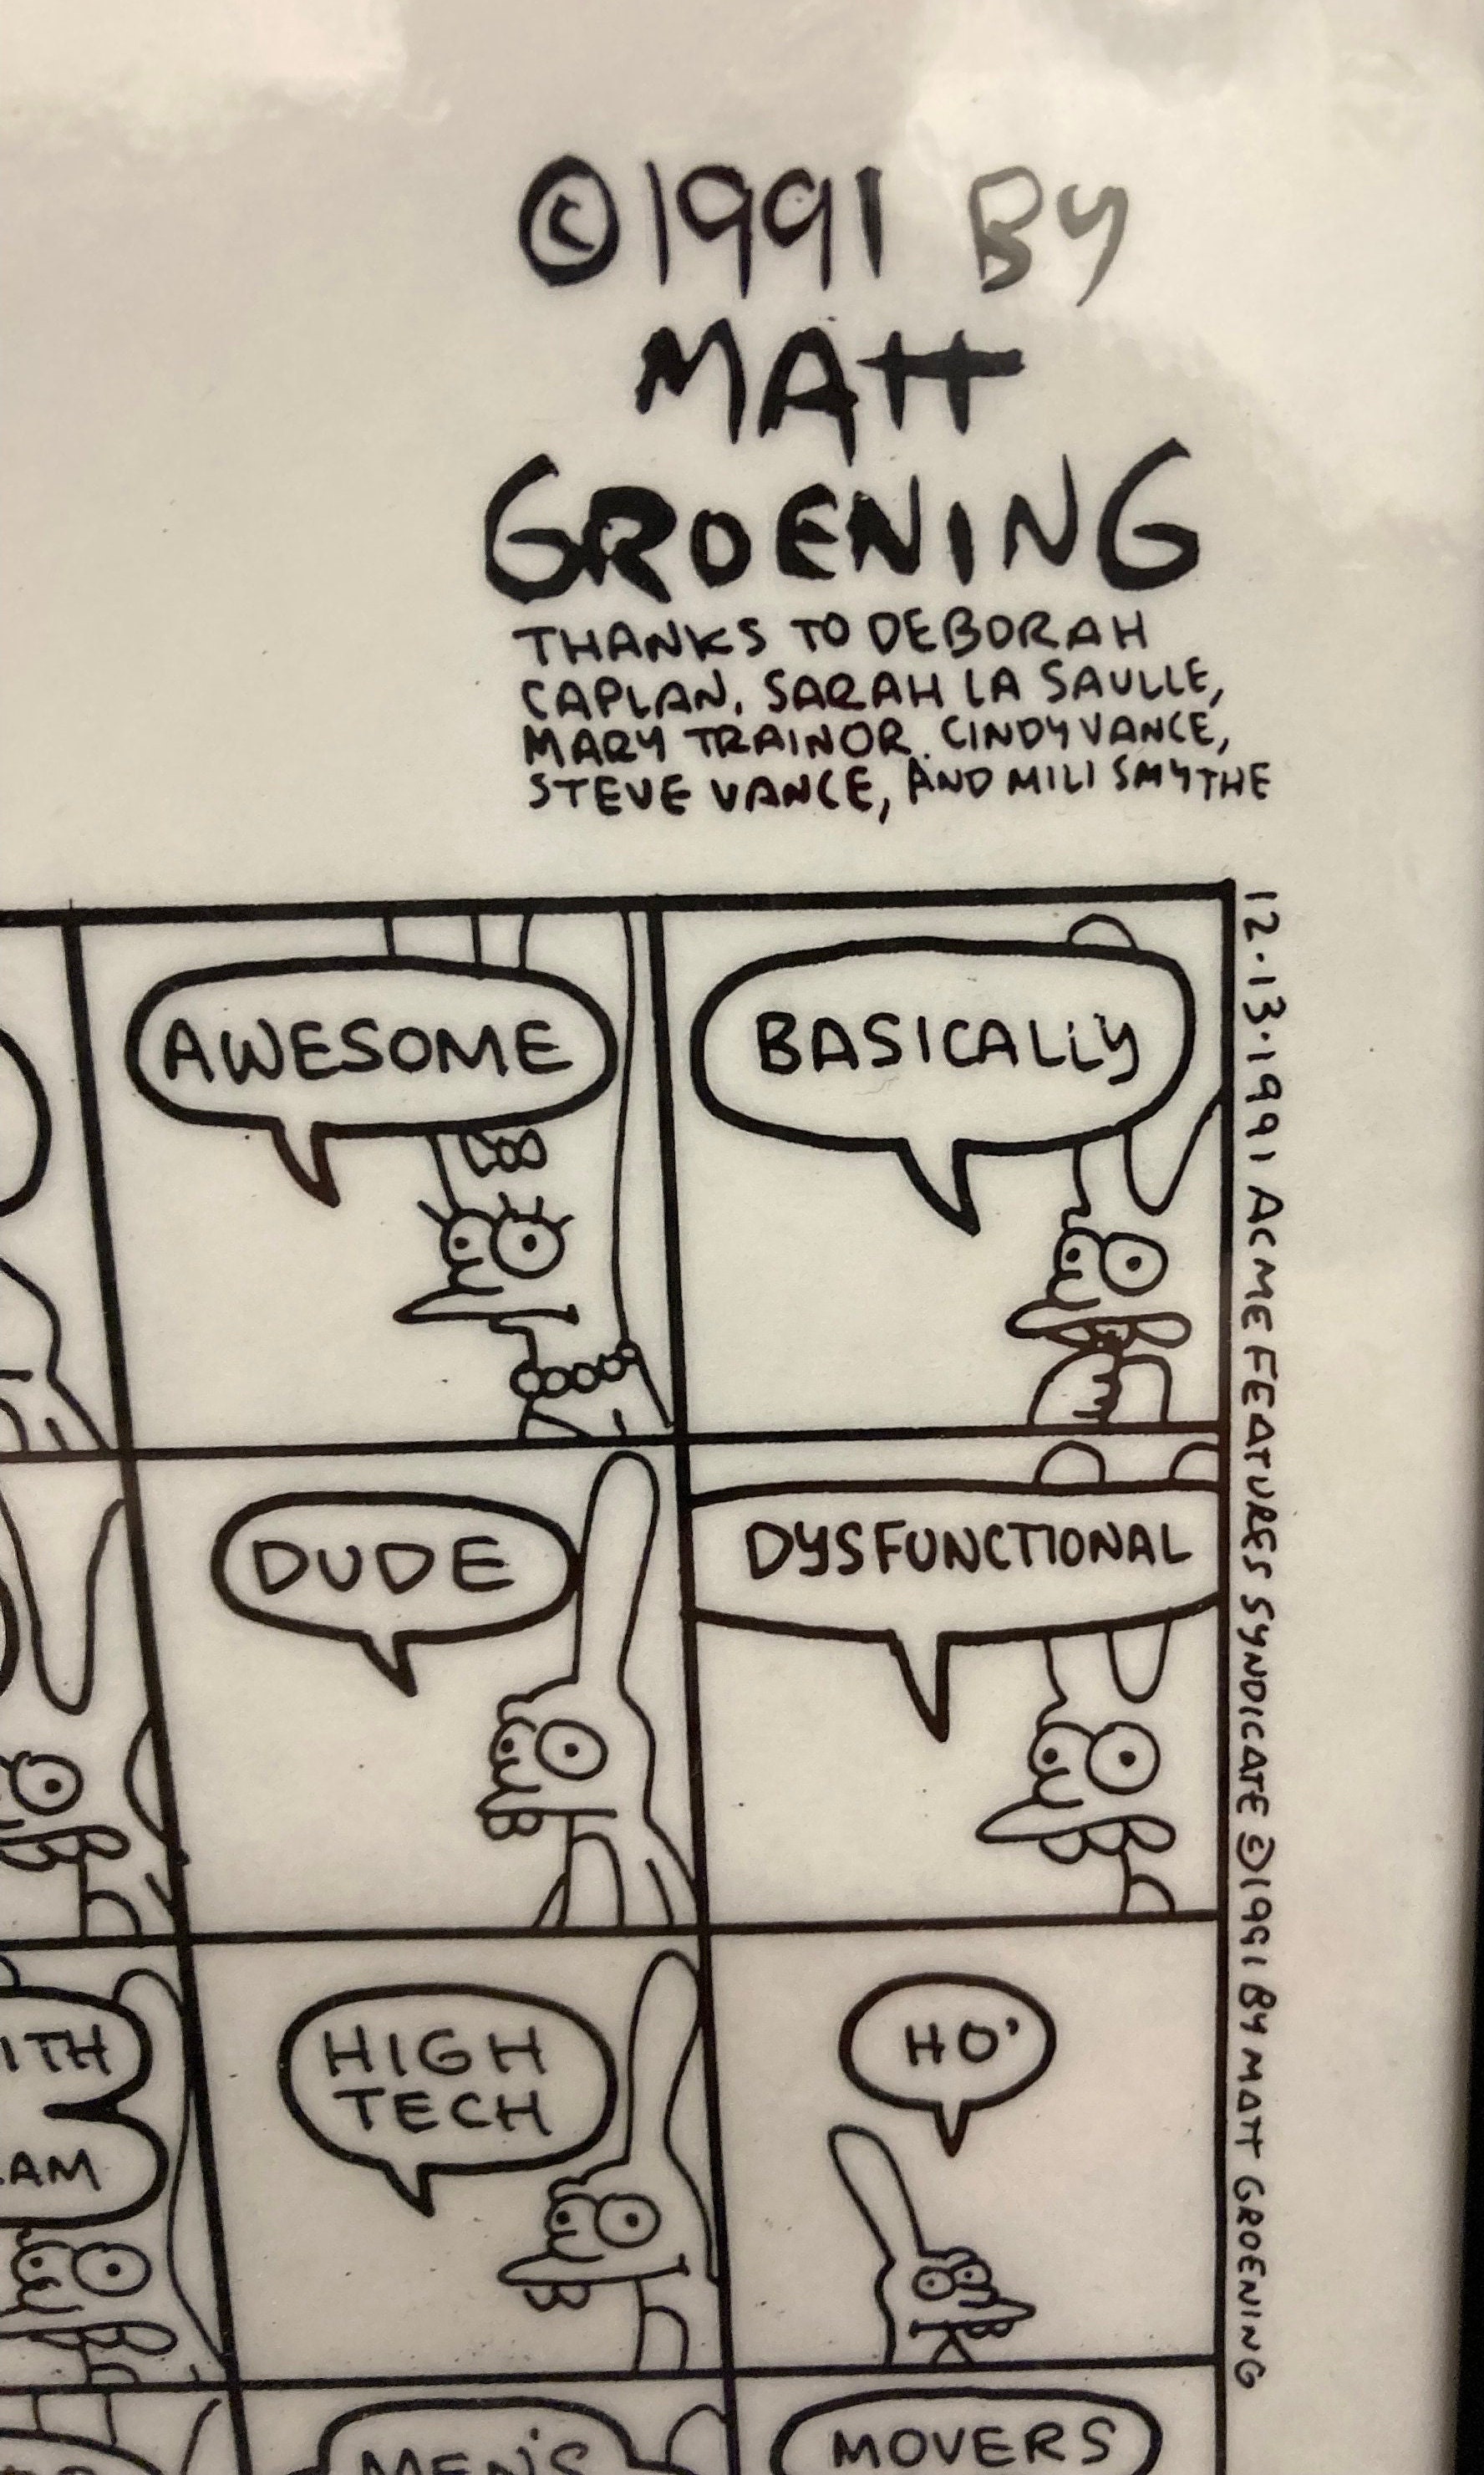 ©1991 BY
MATT
GROENING
THANKS TO DEBORAH
CAPLAN, SARAH LA SAULLE,
MARY TRAINOR, CINDY VANCE,
STEVE VANCE, AND MILI SMYTHE
AWESOME
BASICALLY
DUDE
DYSFUNCTIONAL
ITH
AM
HIGH
TECH
HO'
MEN'S
MOVERS
12·13·1991 ACME FEATURES SYNDICATE ©1991 BY MATT GROENING